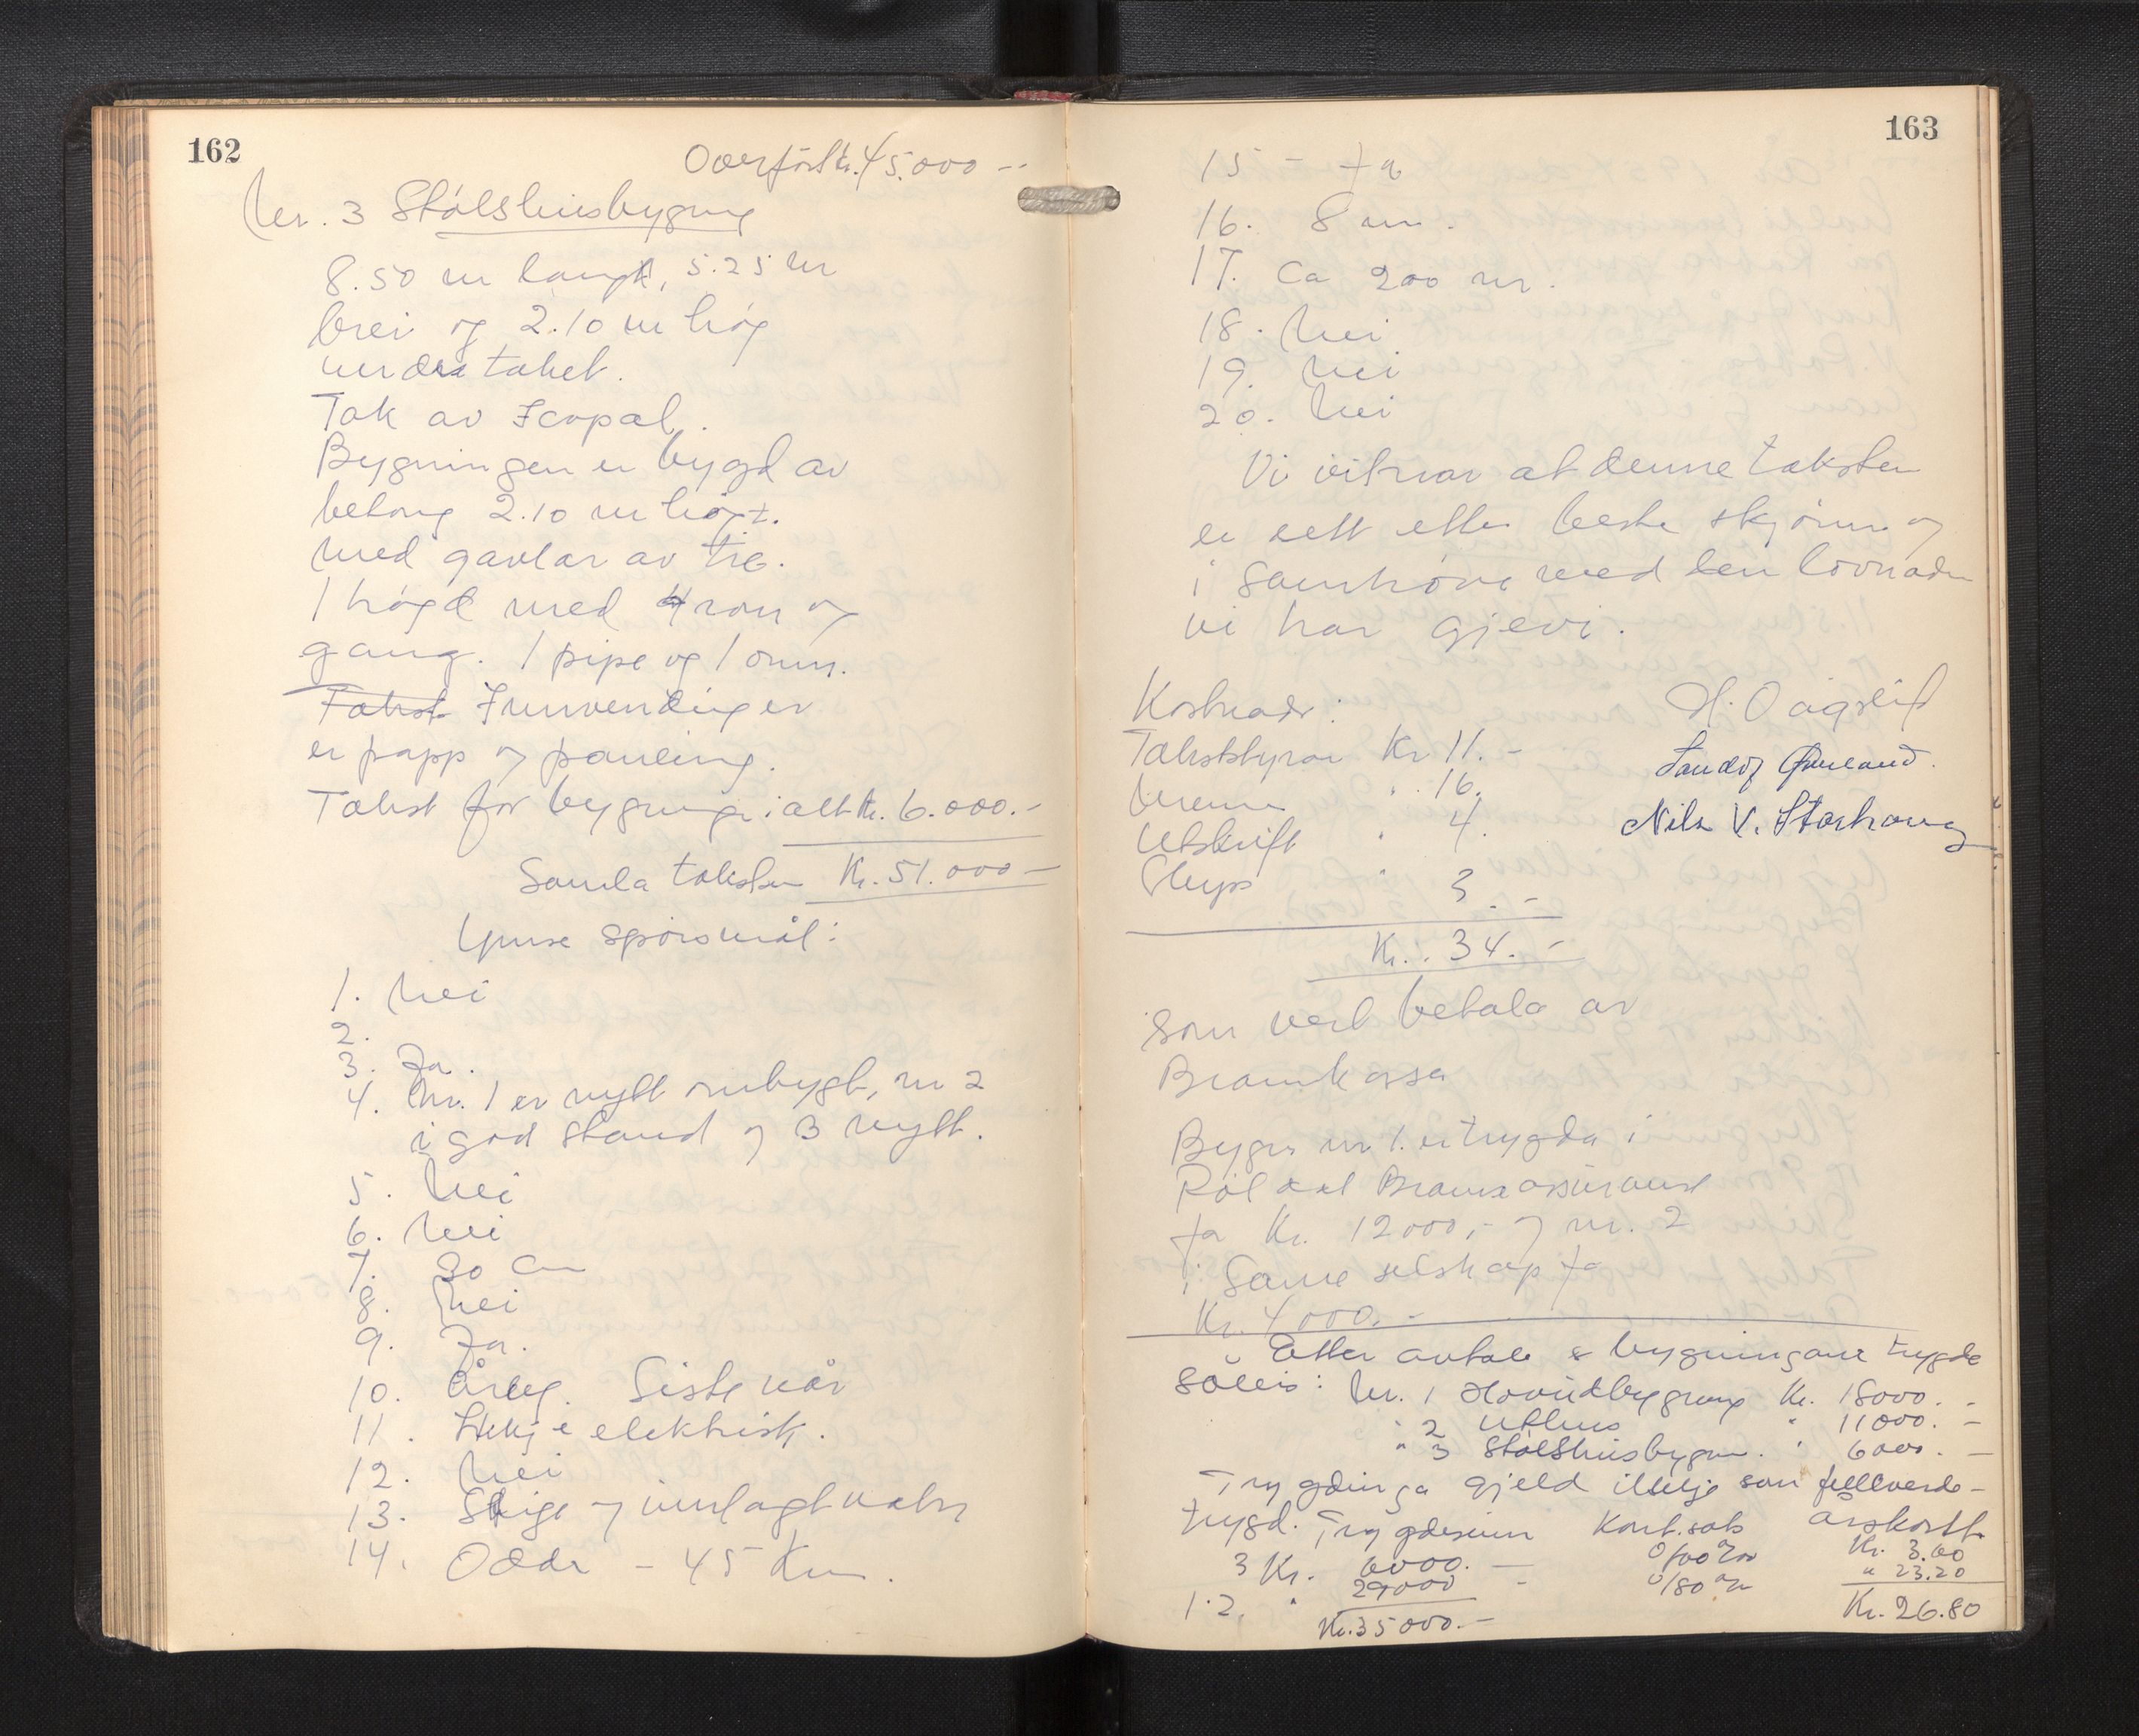 162
Overført kr. 45.000 --
Nr. 3 Stølshusbygning
8.50 m langt, 5.25 m
brei og 2.10 m høg
under taket.
Tak av Icopal.
Bygningen er bygd av
betong 2.10 m høgt.
med gavlar av tre.
1 høgd med 4 rom og
gang. 1 pipe og 1 omn.
Takst Innvendinger
er papp og paneling.
Takst for bygninga i alt kr. 6.000.-
Samla taksten Kr. 51.000 -
Ymse spørsmål:
1. Nei
2.
3. Ja.
4. Nr. 1 er nytt ombygt, nr 2
i god stand og 3 nytt.
5. Nei
6. Nei
7. 30 cm
8. Nei
9. Ja.
10. Årleg. Siste vår
11. Ikkje elektrisk.
12. Nei
13. Stige og innlagt vatn
14. Odda - 45 Km.
163
15 - Ja
16. 8 m.
17. Ca 200 m.
18. Nei
19. Nei
20. Nei
Vi vitnar at denne taksten
er sett etter beste skjønn og
i samhøve med den lovnaden
vi har gjevi.
Kostnader:
Takststyrar Kr 11.-
Menn " 16.
Utskrift " 4.
Skyss " 3.-
Kr. 34.-
H. Oagslid
Nils V. Storhaug
som vert betala av
Brannkassa
Bygn nr 1. er trygda i
Røldal Brannassuranse
fa Kr. 12000,- og nr. 2
i same selskap fa
Kr. 4000.-
Etter avtale er bygningane trygda
såleis: Nr. 1 Hovudbygning Kr. 18000.-
" 2 Uthus " 11000.-
" 3 Stølshusbygn. " 6000.-
Trygdinga gjeld ikkje som fullverde-
trygd. Trygdesum Kont.sats årskont.
3 Kr. 6000.- 0/60 Kr. 3.60
1.2. " 29000 - 0/80 " 23.20
Kr. 35000.- Kr. 26.80